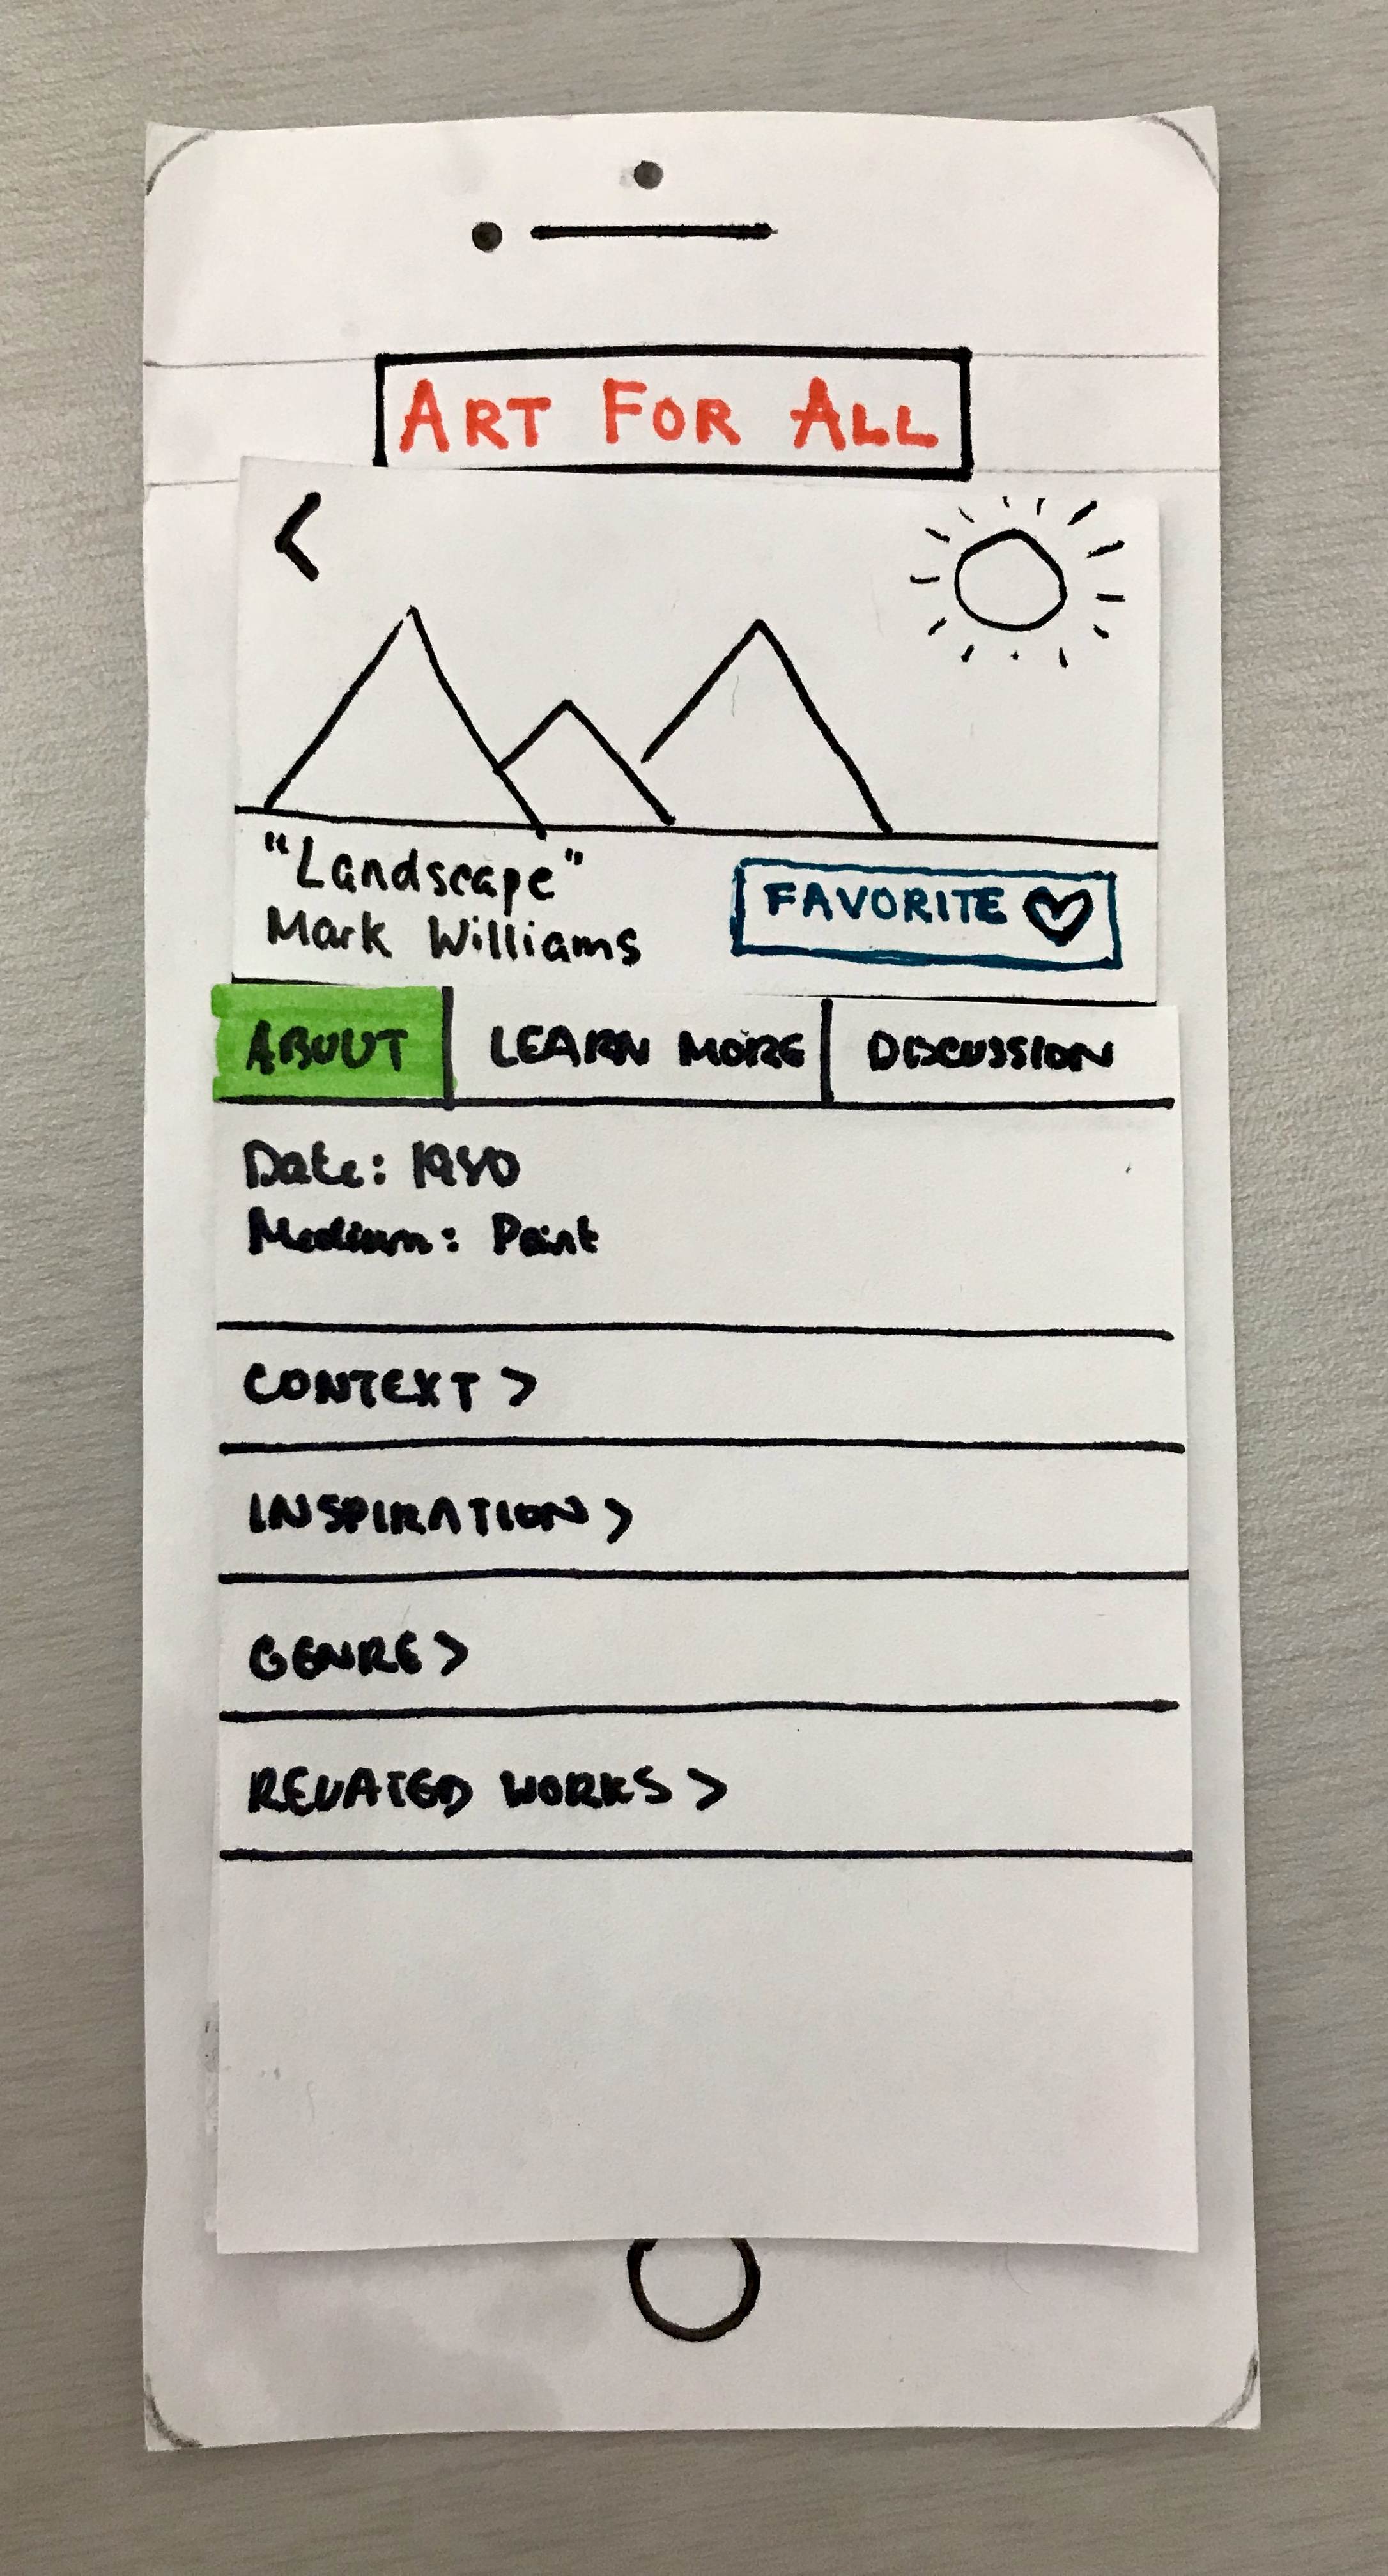 ART FOR ALL
<
"Landscape"
Mark Williams
FAVORITE ♡
ABOUT
LEARN MORE
DISCUSSION
Date: 1980
Medium: Paint
CONTEXT >
INSPIRATION >
GENRE >
RELATED WORKS >